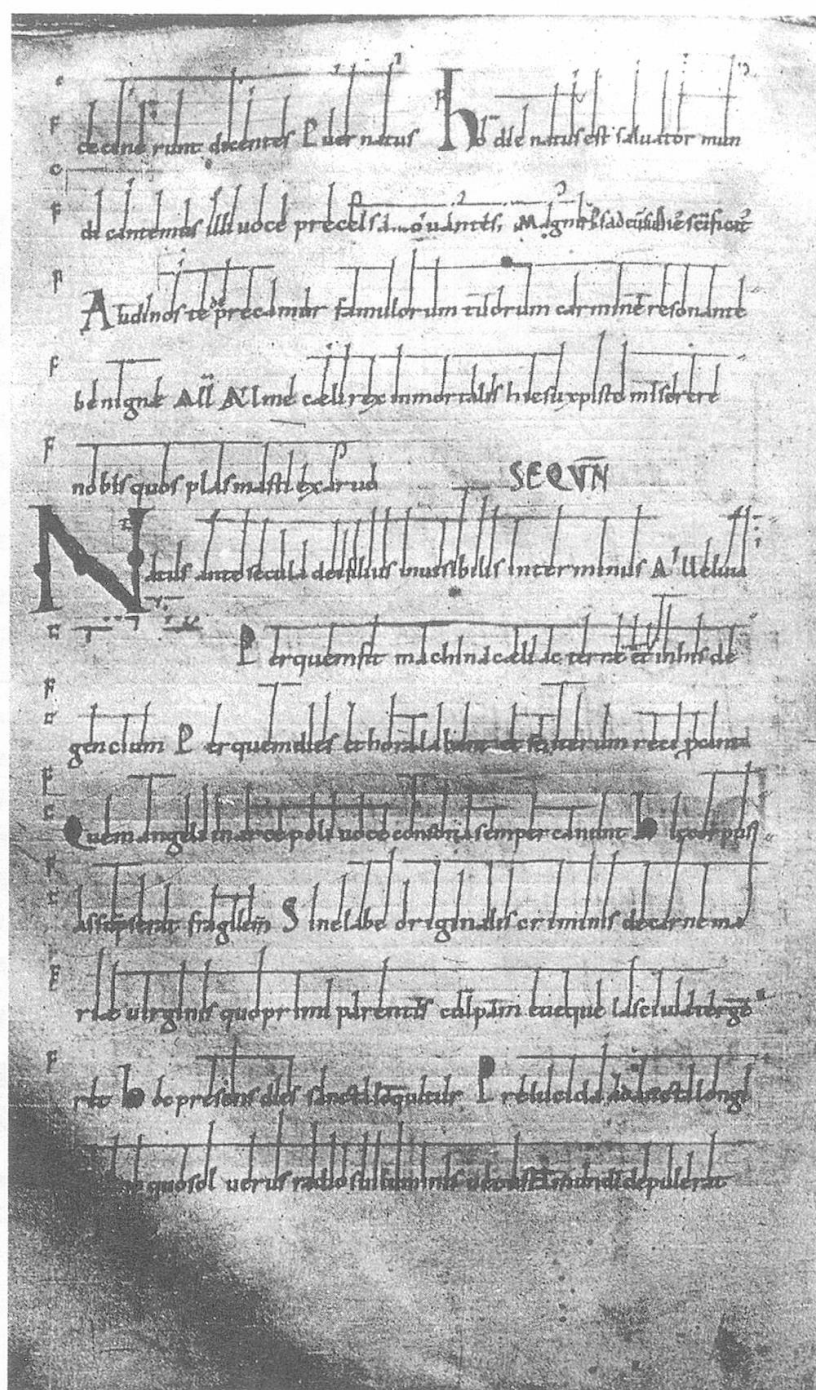 cecine runt dicentes Puer natus hodie natus est salvator mun
di cantemus illi uoce precelsa ouantes, Magnus
Audi nos te deprecamur famulorum tuorum carmine resonante
benigne All Alme cæli rex inmortalis hiesu xpiste miserere
nobis quos plasmasti ex arud
SEQVN
Natus ante secula dei filius inuisibilis interminus Alleluia
Per quem fit machina cæli ac terræ et in his de
gencium Per quem dies et hore labant et se iterum reci
Quem angeli in arce poli uoce consona semper canunt hic corpus
assupserat fragilem Sine labe originalis criminis de carne ma
rie uirginis quo primi parentis culpam eueque lasciuia terge
ret hoc presens dies Prelucida longi
quo sol uerus radio sui luminis mundi depulerat